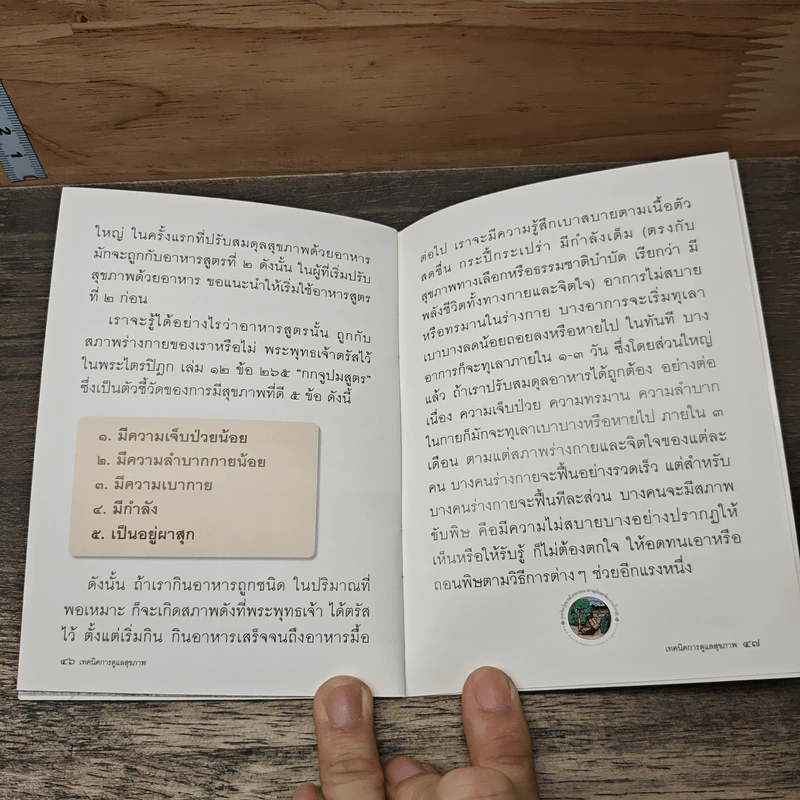 ใหญ่ ในครั้งแรกที่ปรับสมดุลสุขภาพด้วยอาหาร
มักจะถูกกับอาหารสูตรที่ ๒ ดังนั้น ในผู้ที่เริ่มปรับ
สุขภาพด้วยอาหาร ขอแนะนำให้เริ่มใช้อาหารสูตร
ที่ ๒ ก่อน
เราจะรู้ได้อย่างไรว่าอาหารสูตรนั้น ถูกกับ
สภาพร่างกายของเราหรือไม่ พระพุทธเจ้าตรัสไว้
ในพระไตรปิฎก เล่ม ๑๒ ข้อ ๒๖๕ “กกจูปมสูตร”
ซึ่งเป็นตัวชี้วัดของการมีสุขภาพที่ดี ๕ ข้อ ดังนี้
๑. มีความเจ็บป่วยน้อย
๒. มีความลำบากกายน้อย
๓. มีความเบากาย
๔. มีกำลัง
๕. เป็นอยู่ผาสุก
ดังนั้น ถ้าเรากินอาหารถูกชนิด ในปริมาณที่
พอเหมาะ ก็จะเกิดสภาพดังที่พระพุทธเจ้า ได้ตรัส
ไว้ ตั้งแต่เริ่มกิน กินอาหารเสร็จจนถึงอาหารมื้อ
๔๖ เทคนิคการดูแลสุขภาพ
ต่อไป เราจะมีความรู้สึกเบาสบายตามเนื้อตัว
สดชื่น กระปี้กระเปร่า มีกำลังเต็ม (ตรงกับ
สุขภาพทางเลือกหรือธรรมชาติบำบัด เรียกว่า มี
พลังชีวิตทั้งทางกายและจิตใจ) อาการไม่สบาย
หรือทรมานในร่างกาย บางอาการจะเริ่มทุเลา
เบาบางลดน้อยถอยลงหรือหายไป ในทันที บาง
อาการก็จะทุเลาภายใน ๑-๓ วัน ซึ่งโดยส่วนใหญ่
แล้ว ถ้าเราปรับสมดุลอาหารได้ถูกต้อง อย่างต่อ
เนื่อง ความเจ็บป่วย ความทรมาน ความลำบาก
ในกายก็มักจะทุเลาเบาบางหรือหายไป ภายใน ๓
เดือน ตามแต่สภาพร่างกายและจิตใจของแต่ละ
คน บางคนร่างกายจะฟื้นอย่างรวดเร็ว แต่สำหรับ
บางคนร่างกายจะฟื้นทีละส่วน บางคนจะมีสภาพ
ขับพิษ คือมีความไม่สบายบางอย่างปรากฏให้
เห็นหรือให้รับรู้ ก็ไม่ต้องตกใจ ให้อดทนเอาหรือ
ถอนพิษตามวิธีการต่างๆ ช่วยอีกแรงหนึ่ง
เทคนิคการดูแลสุขภาพ ๔๗